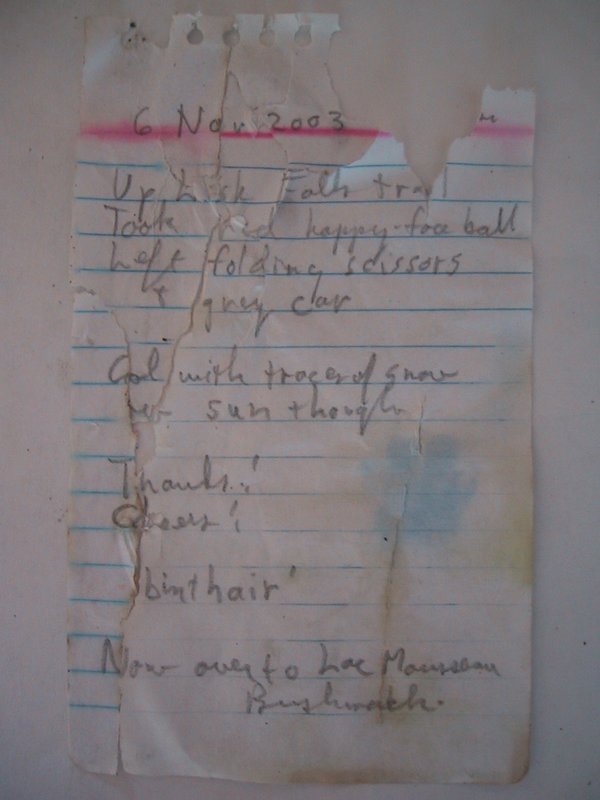 6 Nov 2003
Up Lusk Falls trail
Took red happy-face ball
Left folding scissors
+ grey car
Cool with traces of snow
sun though
Thanks!
Cheers!
binthair
Now over to Lac Mousseau
Bushwack.